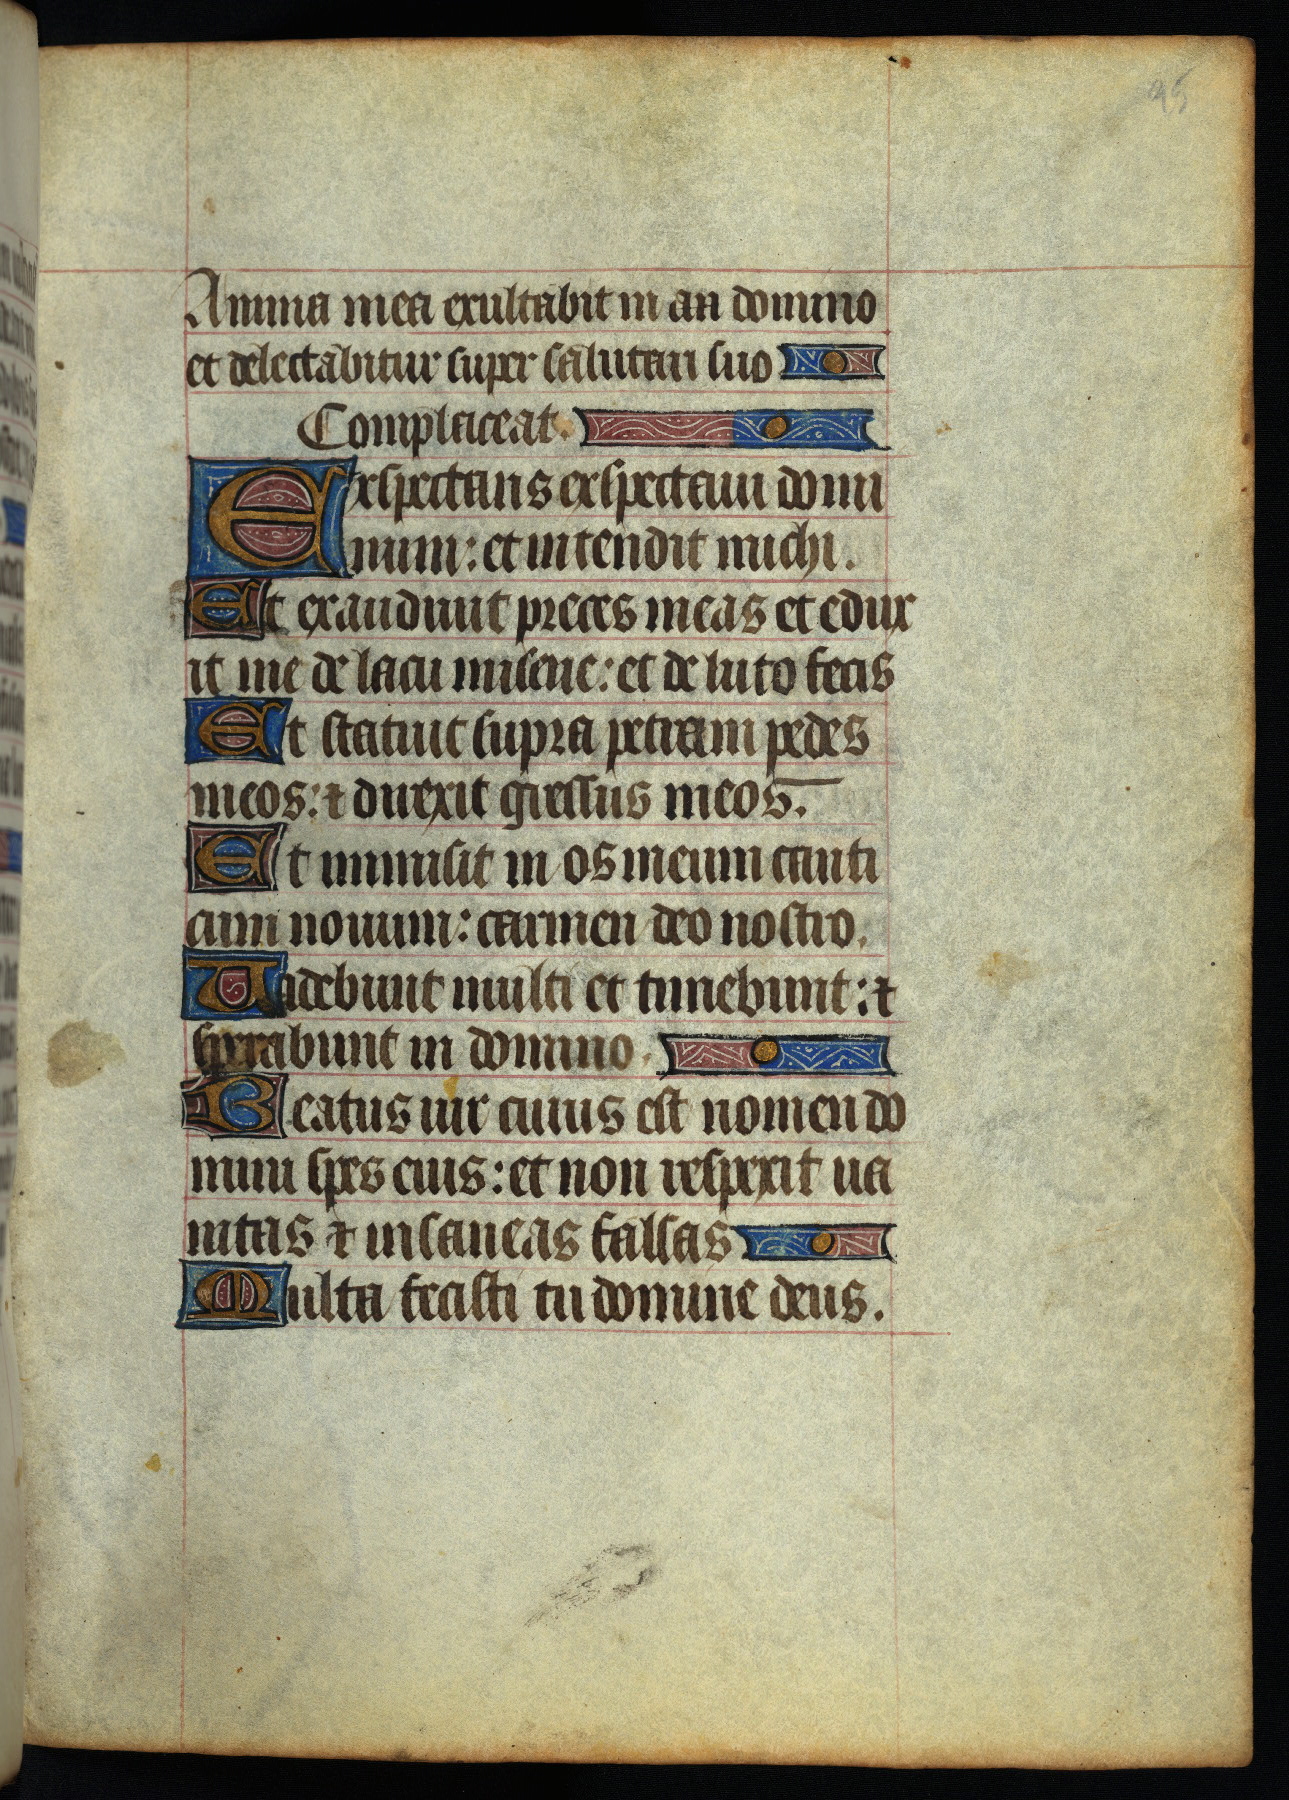 95
Anima mea exultabit in an domino
et delectabitur super salutari suo
Complaceat.
Exspectans exspectaui domi
num: et intendit michi.
Et exaudiuit preces meas et edux
it me de lacu miserie: et de luto fecis
Et statuit supra petram pedes
meos: ⁊ direxit gressus meos.
Et immisit in os meum canti
cum nouum: carmen deo nostro.
Uidebunt multi et timebunt: ⁊
sperabunt in domino.
Beatus uir cuius est nomen do
mini spes eius: et non respexit ua
nitas ⁊ insaneas falsas
Multa fecisti tu domine deus.